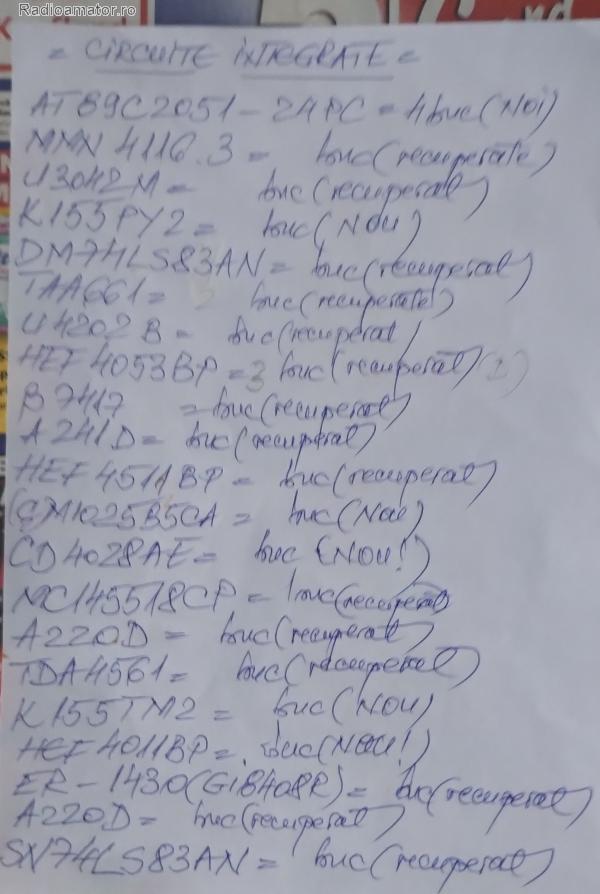 Radioamator.ro
= CIRCUITE INTEGRATE =
AT89C2051-24PC = 4 buc (NOI)
MMN 4116.3 = buc (recuperate)
U3042M = buc (recuperat)
K155РУ2 = buc (NOU)
DM74LS83AN = buc (recuperat)
TAA661 = buc (recuperate)
U4202B = buc (recuperat)
HEF4053BP = 3 buc (recuperat)
B7417 = buc (recuperat)
A241D = buc (recuperat)
HEF4511BP = buc (recuperat)
M1025B5CA = buc (Nou)
CD4028AE = buc (NOU!)
MC145518CP = 1 buc (recuperat)
A220D = buc (recuperat)
TDA4561 = buc (recuperat)
K155TM2 = buc (NOU)
HEF4011BP = buc (NOU!)
ER-1430 = buc (recuperat)
A220D = buc (recuperat)
SN74LS83AN = buc (recuperat)